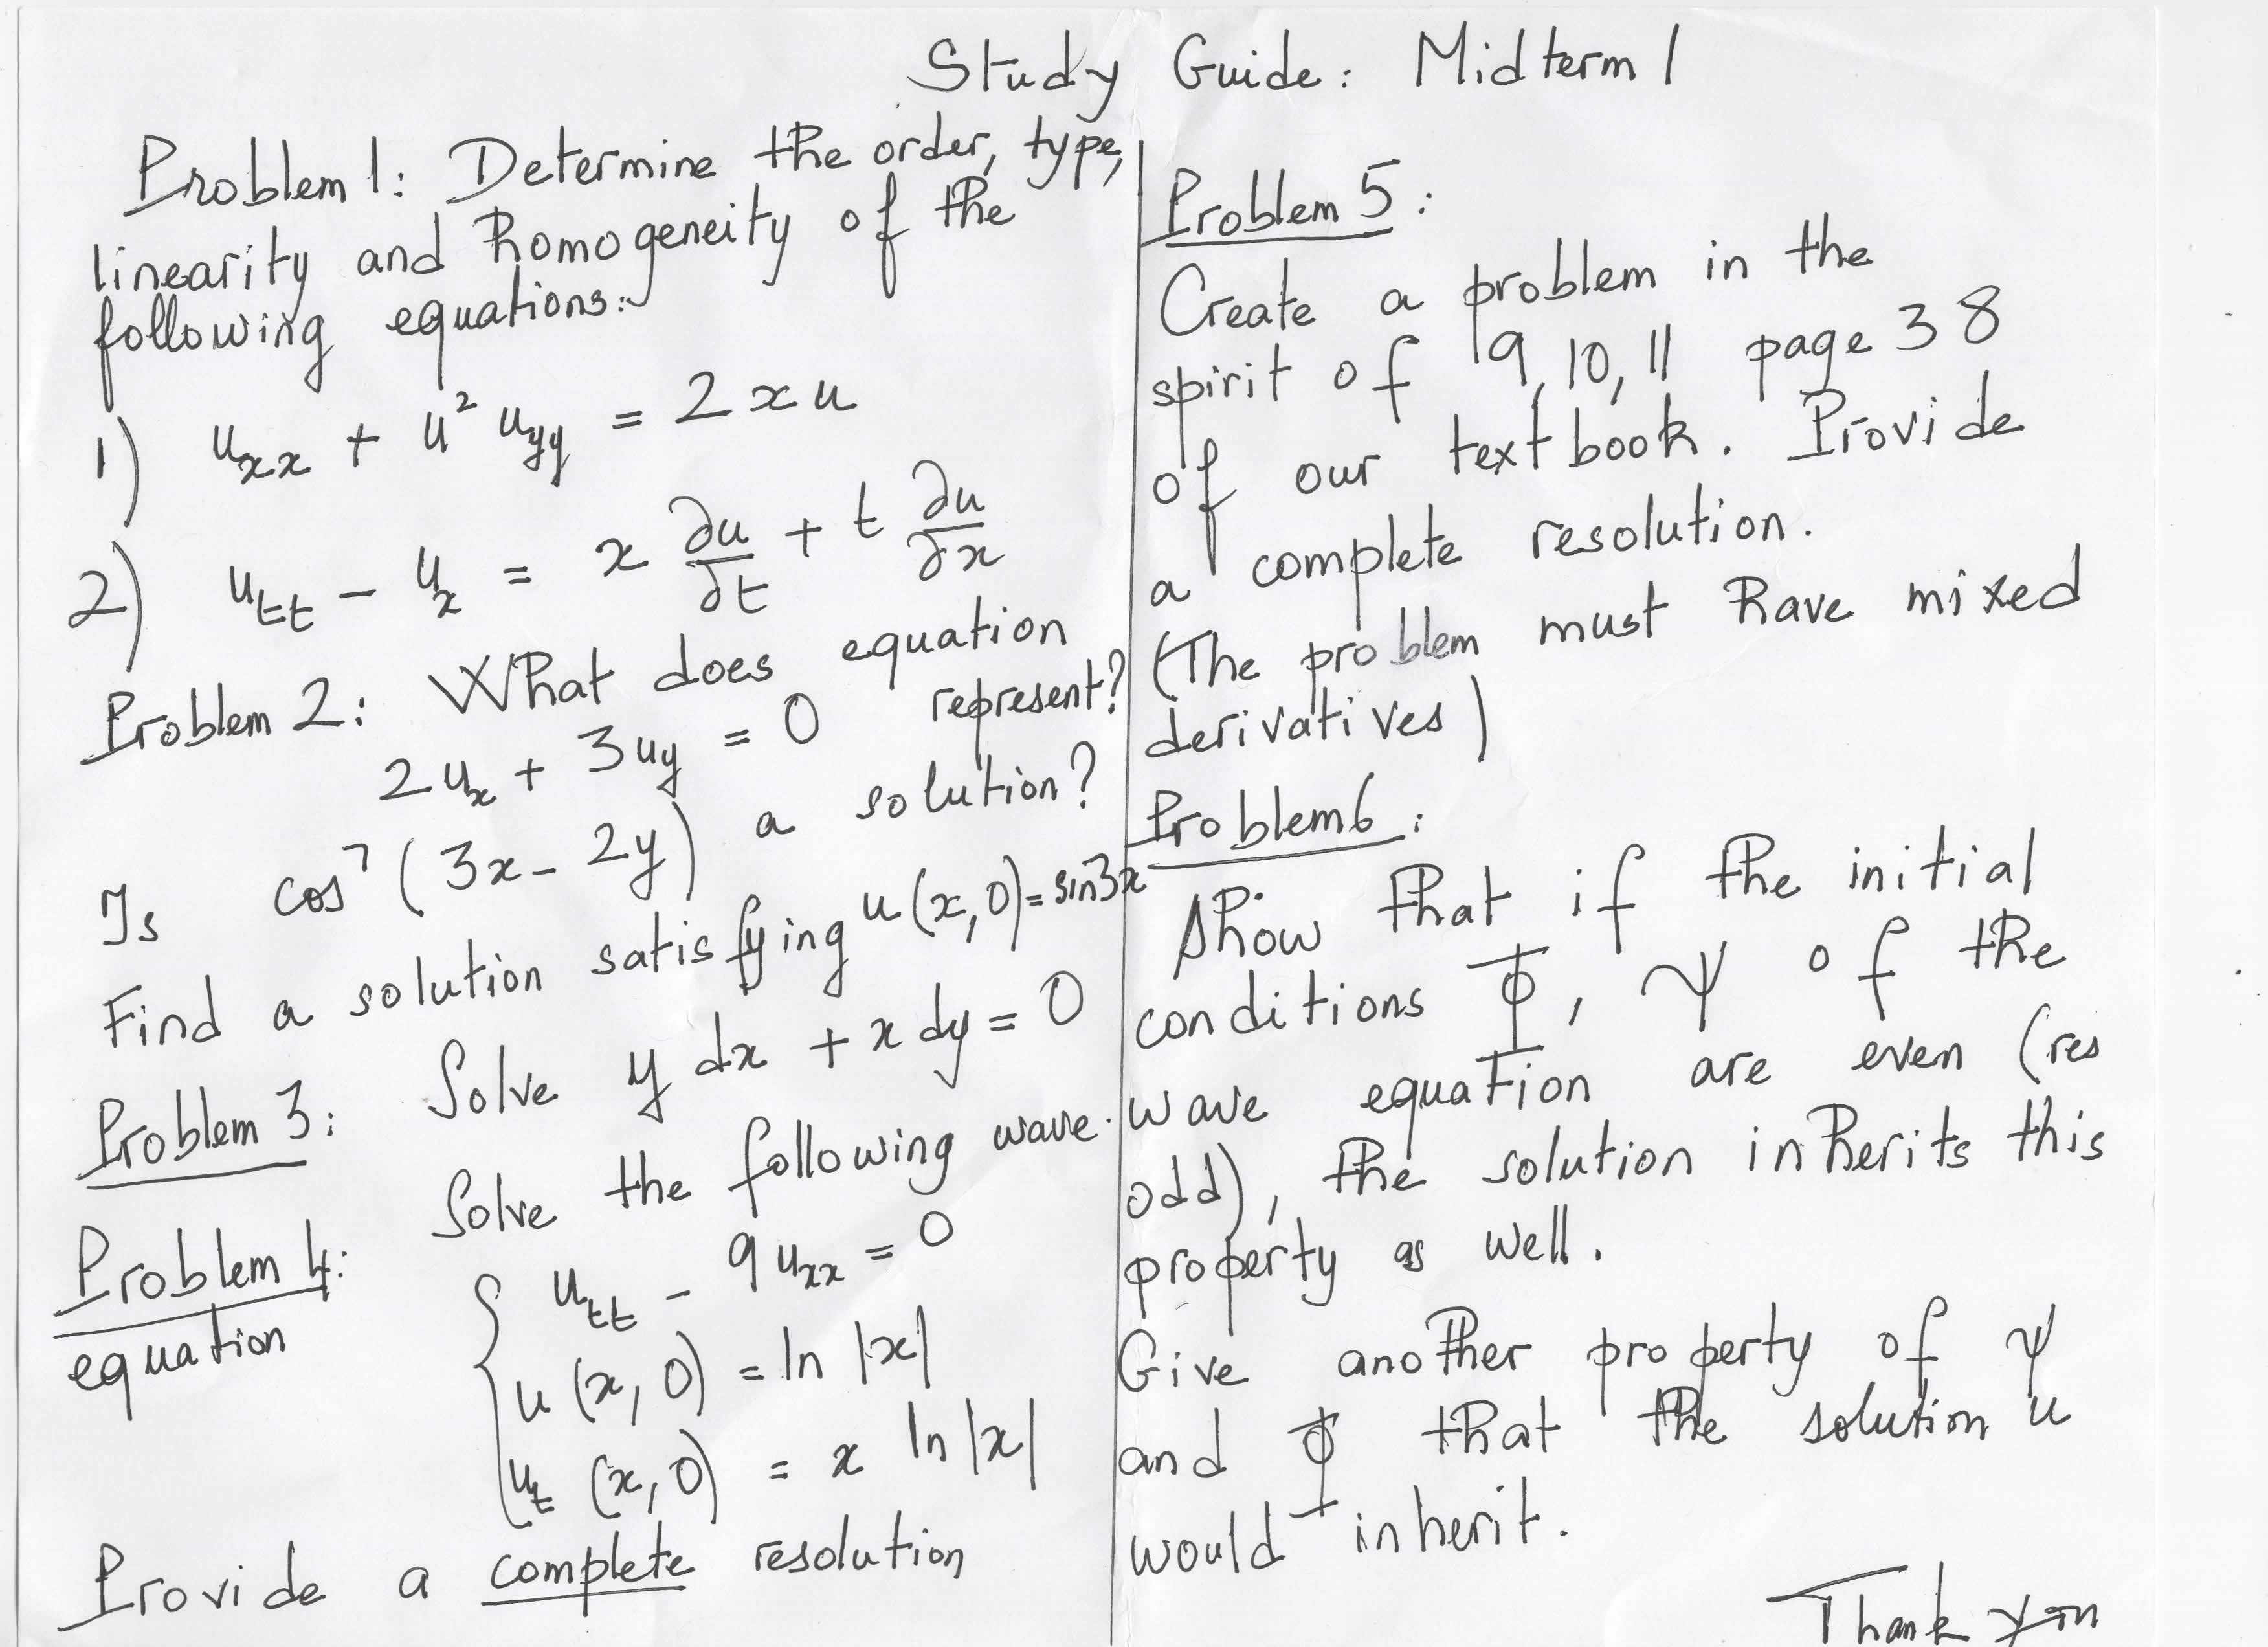 Study Guide: Midterm 1
Problem 1: Determine the order, type,
linearity and homogeneity of the
following equations:
1) u_xx + u² u_yy = 2xu
2) u_tt - u_x = x ∂u/∂t + t ∂u/∂x
Problem 2: What does equation
2u_x + 3u_y = 0 represent?
Is cos⁷(3x - 2y) a solution?
Find a solution satisfying u(x,0) = sin3x
Problem 3: Solve y dx + x dy = 0
Problem 4: Solve the following wave
equation
u_tt - 9u_xx = 0
u(x,0) = ln|x|
u_t(x,0) = x ln|x|
Provide a complete resolution
Problem 5:
Create a problem in the
spirit of 9, 10, 11 page 38
of our textbook. Provide
a complete resolution.
(The problem must have mixed
derivatives)
Problem 6:
Show that if the initial
conditions Φ, Ψ of the
wave equation are even (res
odd), the solution inherits this
property as well.
Give another property of Ψ
and Φ that the solution u
would inherit.
Thank you